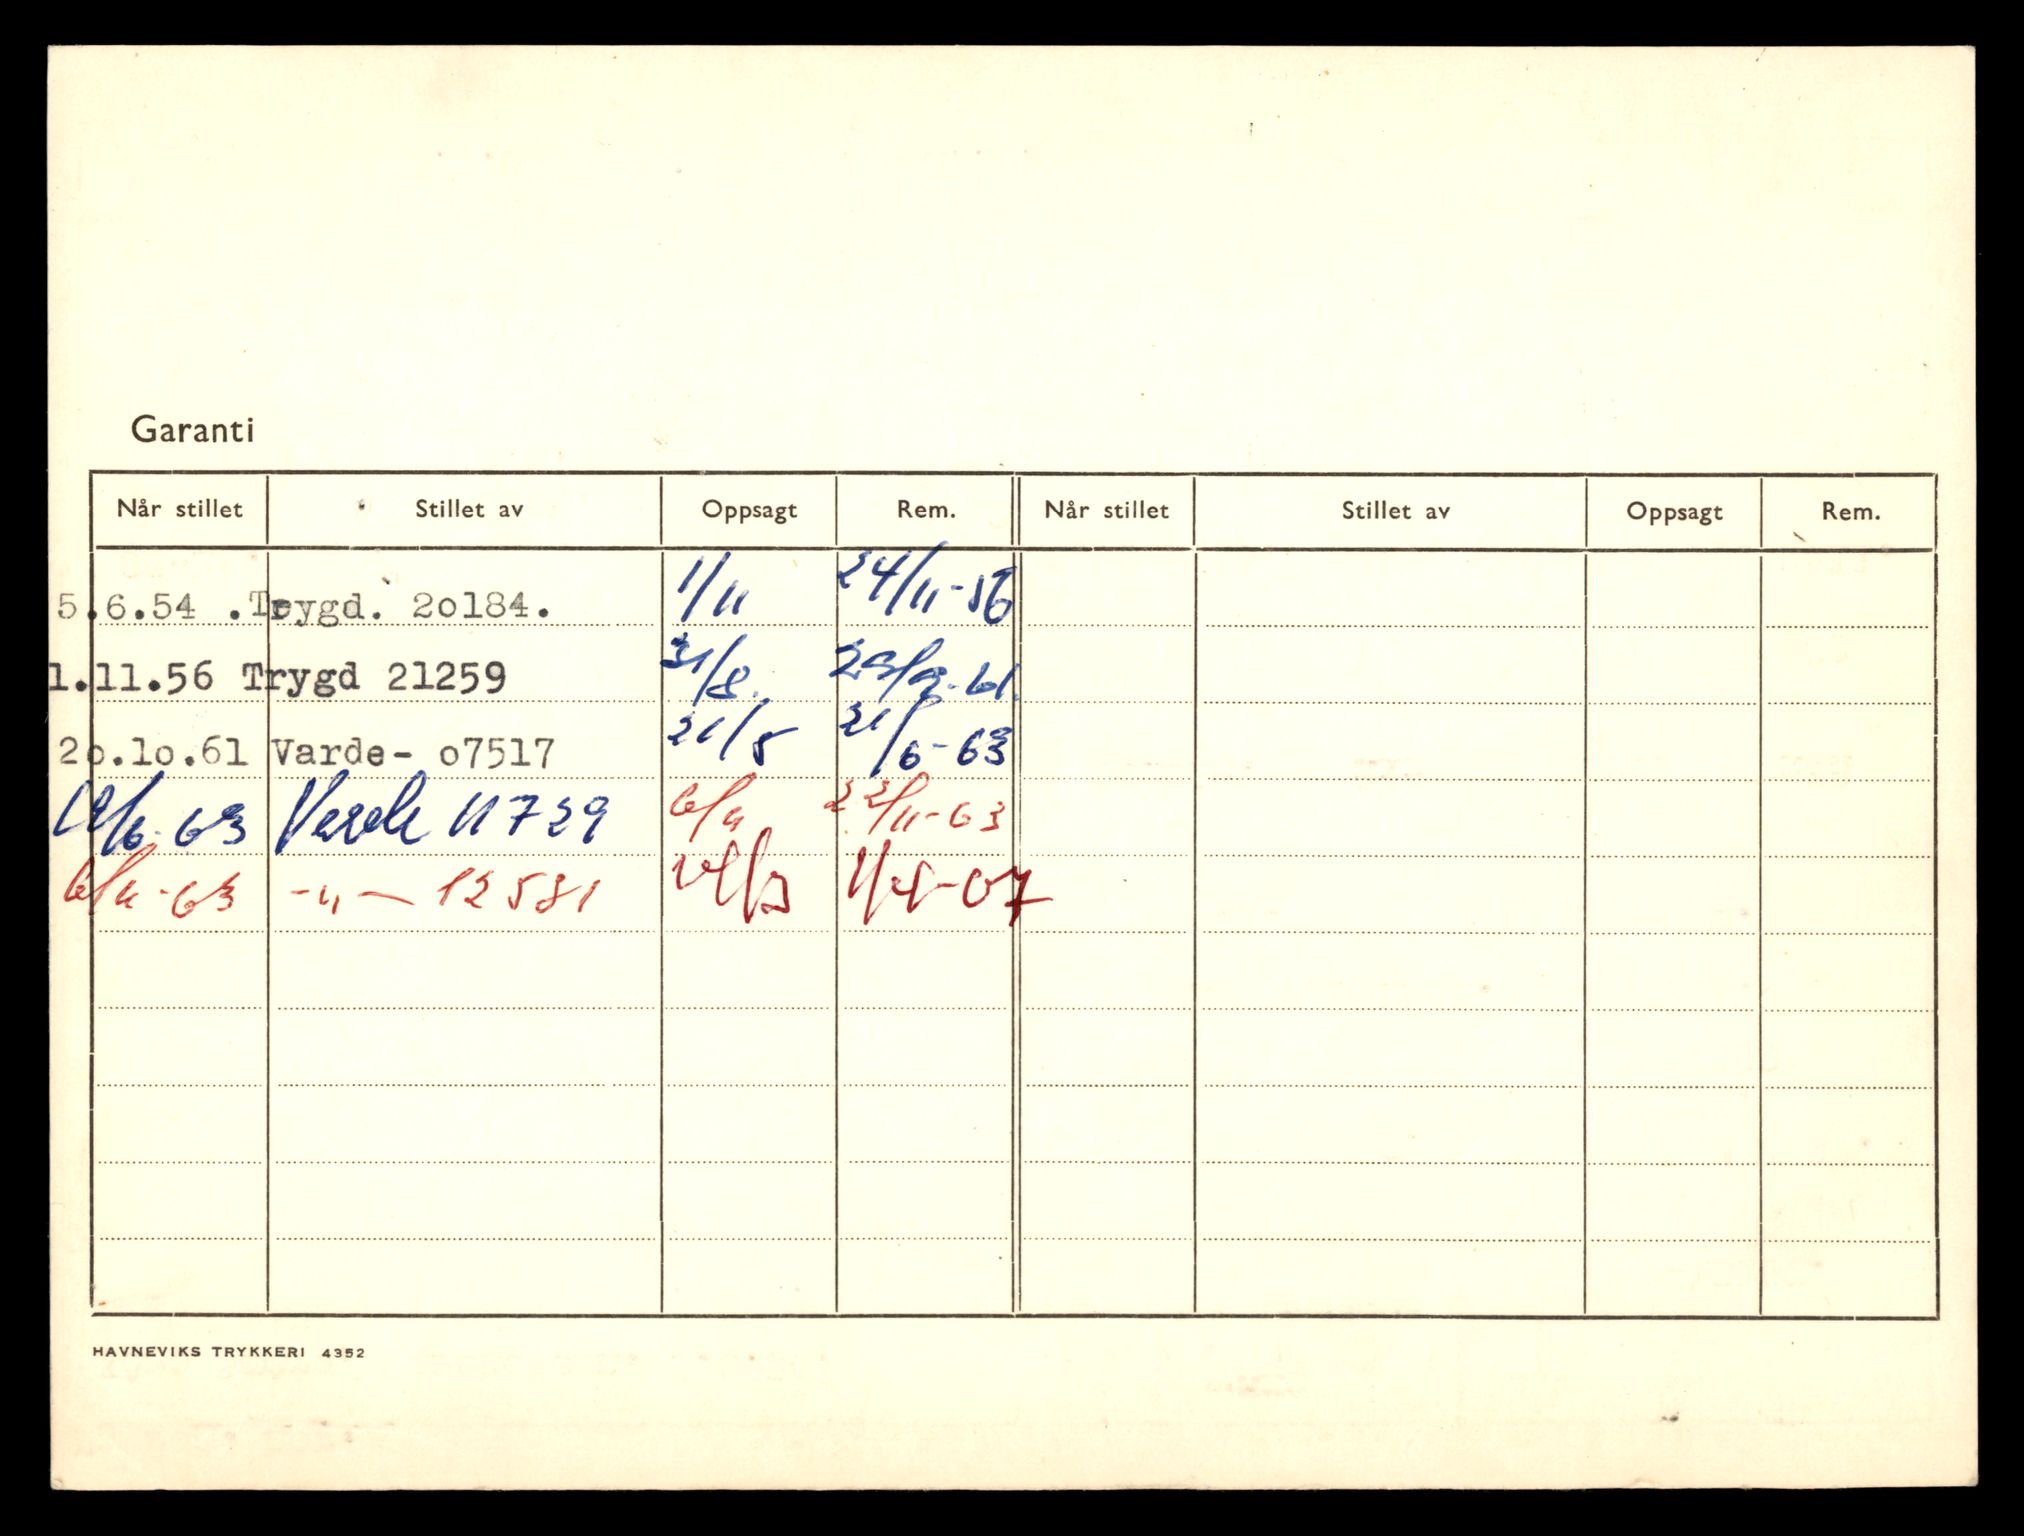 Garanti
Når stillet Stillet av Oppsagt Rem. Når stillet Stillet av Oppsagt Rem.
5.6.54 .Trygd. 2o184. 1/11 24/11-56
1.11.56 Trygd 21259 31/8. 23/9-61.
2o.1o.61 Varde- o7517 21/5 21/6-63
/6-63 Varde 11729 22/11-63
-63 -"- 12581
HAVNEVIKS TRYKKERI 4352